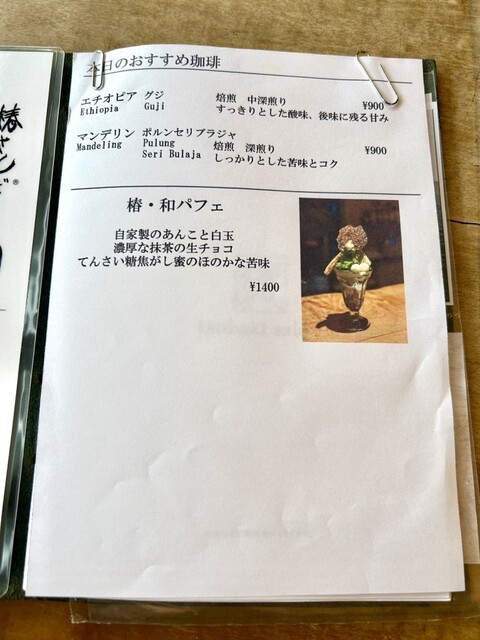 本日のおすすめ珈琲
エチオピア グジ 焙煎 中深煎り ¥900
Ethiopia Guji すっきりとした酸味、後味に残る甘み
マンデリン ポルンセリブラジャ
Mandeling Pulung 焙煎 深煎り ¥900
Seri Bulaja しっかりとした苦味とコク
椿・和パフェ
自家製のあんこと白玉
濃厚な抹茶の生チョコ
てんさい糖焦がし蜜のほのかな苦味
¥1400
椿さんど®